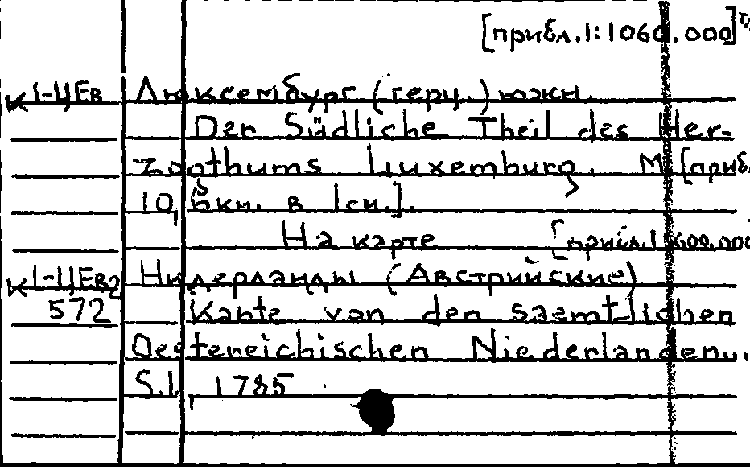 [прибл. 1:1060.000]
К 1-ЦЕв Люксембург (герц.) южн.
Der Südliche Theil des Her-
zogthums Luxemburg. М [приб.
10,6км. в 1см.].
На карте [прибл. 1:600.000
К 1-ЦЕв2 Нидерланды (Австрийские)
572 Karte von den saemtlichen
Oestereichischen Niederlanden...
S.l., 1785